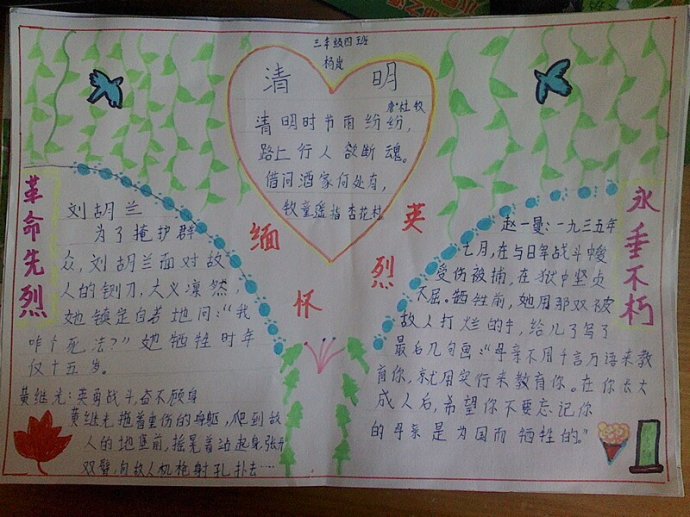 三年级四班
杨岚
清 明
唐·杜牧
清明时节雨纷纷,
路上行人欲断魂。
借问酒家何处有,
牧童遥指杏花村
缅怀英烈
革命先烈
刘胡兰
为了掩护群
众,刘胡兰面对敌
人的铡刀,大义凛然,
她镇定自若地问:“我
咋个死法?”她牺牲时年
仅十五岁。
黄继光:英勇战斗,奋不顾身
黄继光拖着重伤的身躯,爬到敌
人的地堡前,摇晃着站起来,张开
双臂,向敌人机枪射孔扑去…
永垂不朽
赵一曼:一九三五年
七月,在与日军战斗中
受伤被捕,在狱中坚贞
不屈。牺牲前,她用那双被
敌人打烂的手,给儿子写了
最后几句面:“母亲不用千言万语来教
育你,就用实行来教育你。在你长大
成人后,希望你不要忘记你
的母亲是为国而牺牲的。”